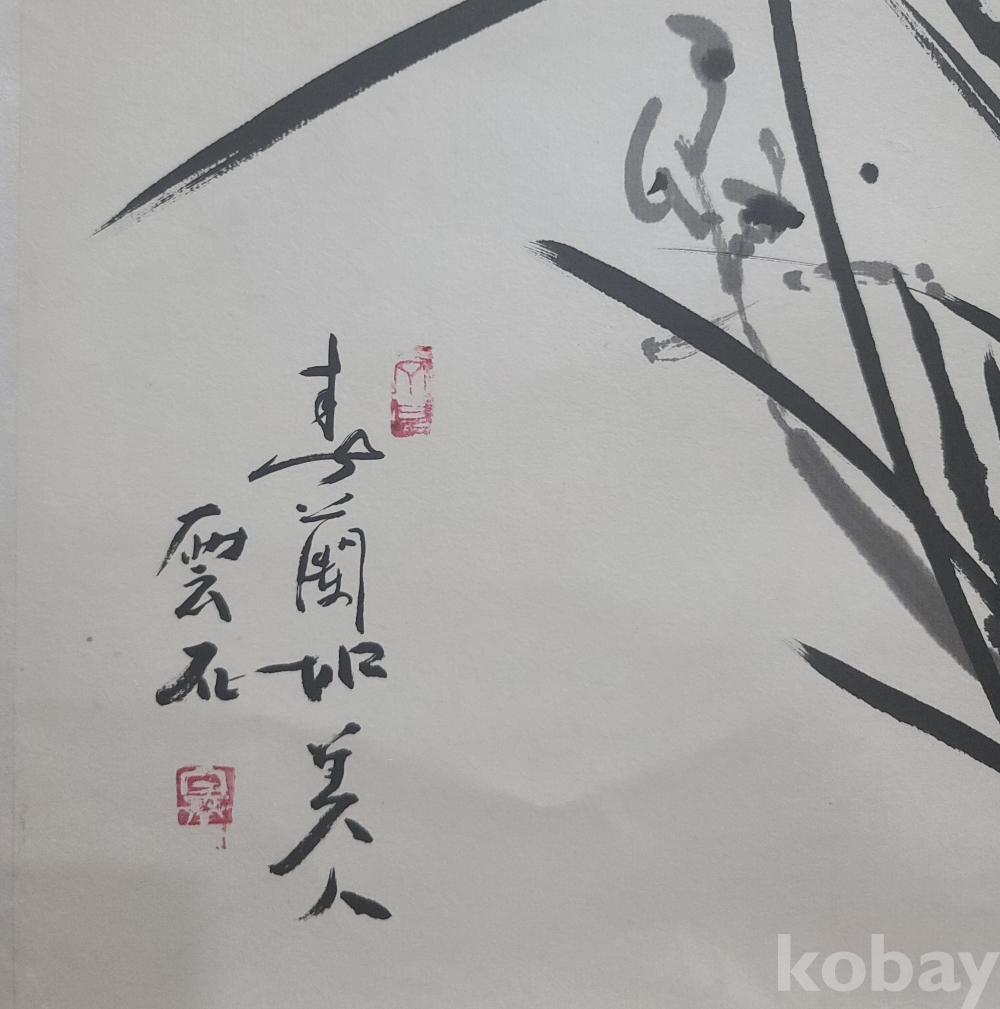 春蘭如美人
雲石
kobay